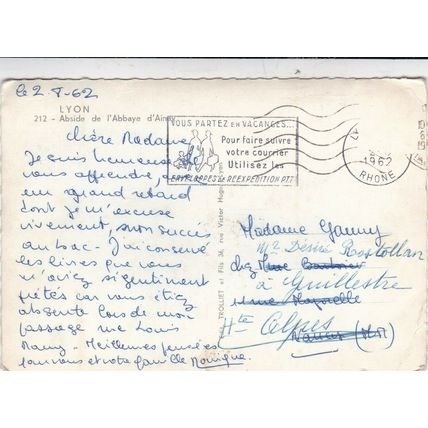 le 2-8-62
LYON
212 - Abside de l'Abbaye d'Ainay
Chère Madame
Je suis heureuse de
vous apprendre, avec
un grand retard
dont je m'excuse
vivement, mon succès
au bac - J'ai conservé
les livres que vous
m'aviez si gentiment
prêtés car vous étiez
absente lors de mon
passage rue Louis
Maury - Meilleures pensées
pour vous et votre famille Monique
VOUS PARTEZ EN VACANCES...
Pour faire suivre
votre courrier
Utilisez les
ENVELOPPES de RÉEXPÉDITION PTT
LY
1962
RHONE
TROLLIET et Fils 36, rue Victor Hugo
Madame Ganny
Mr Désiré Rostollan
chez
à Guillestre
rue
Htes Alpes